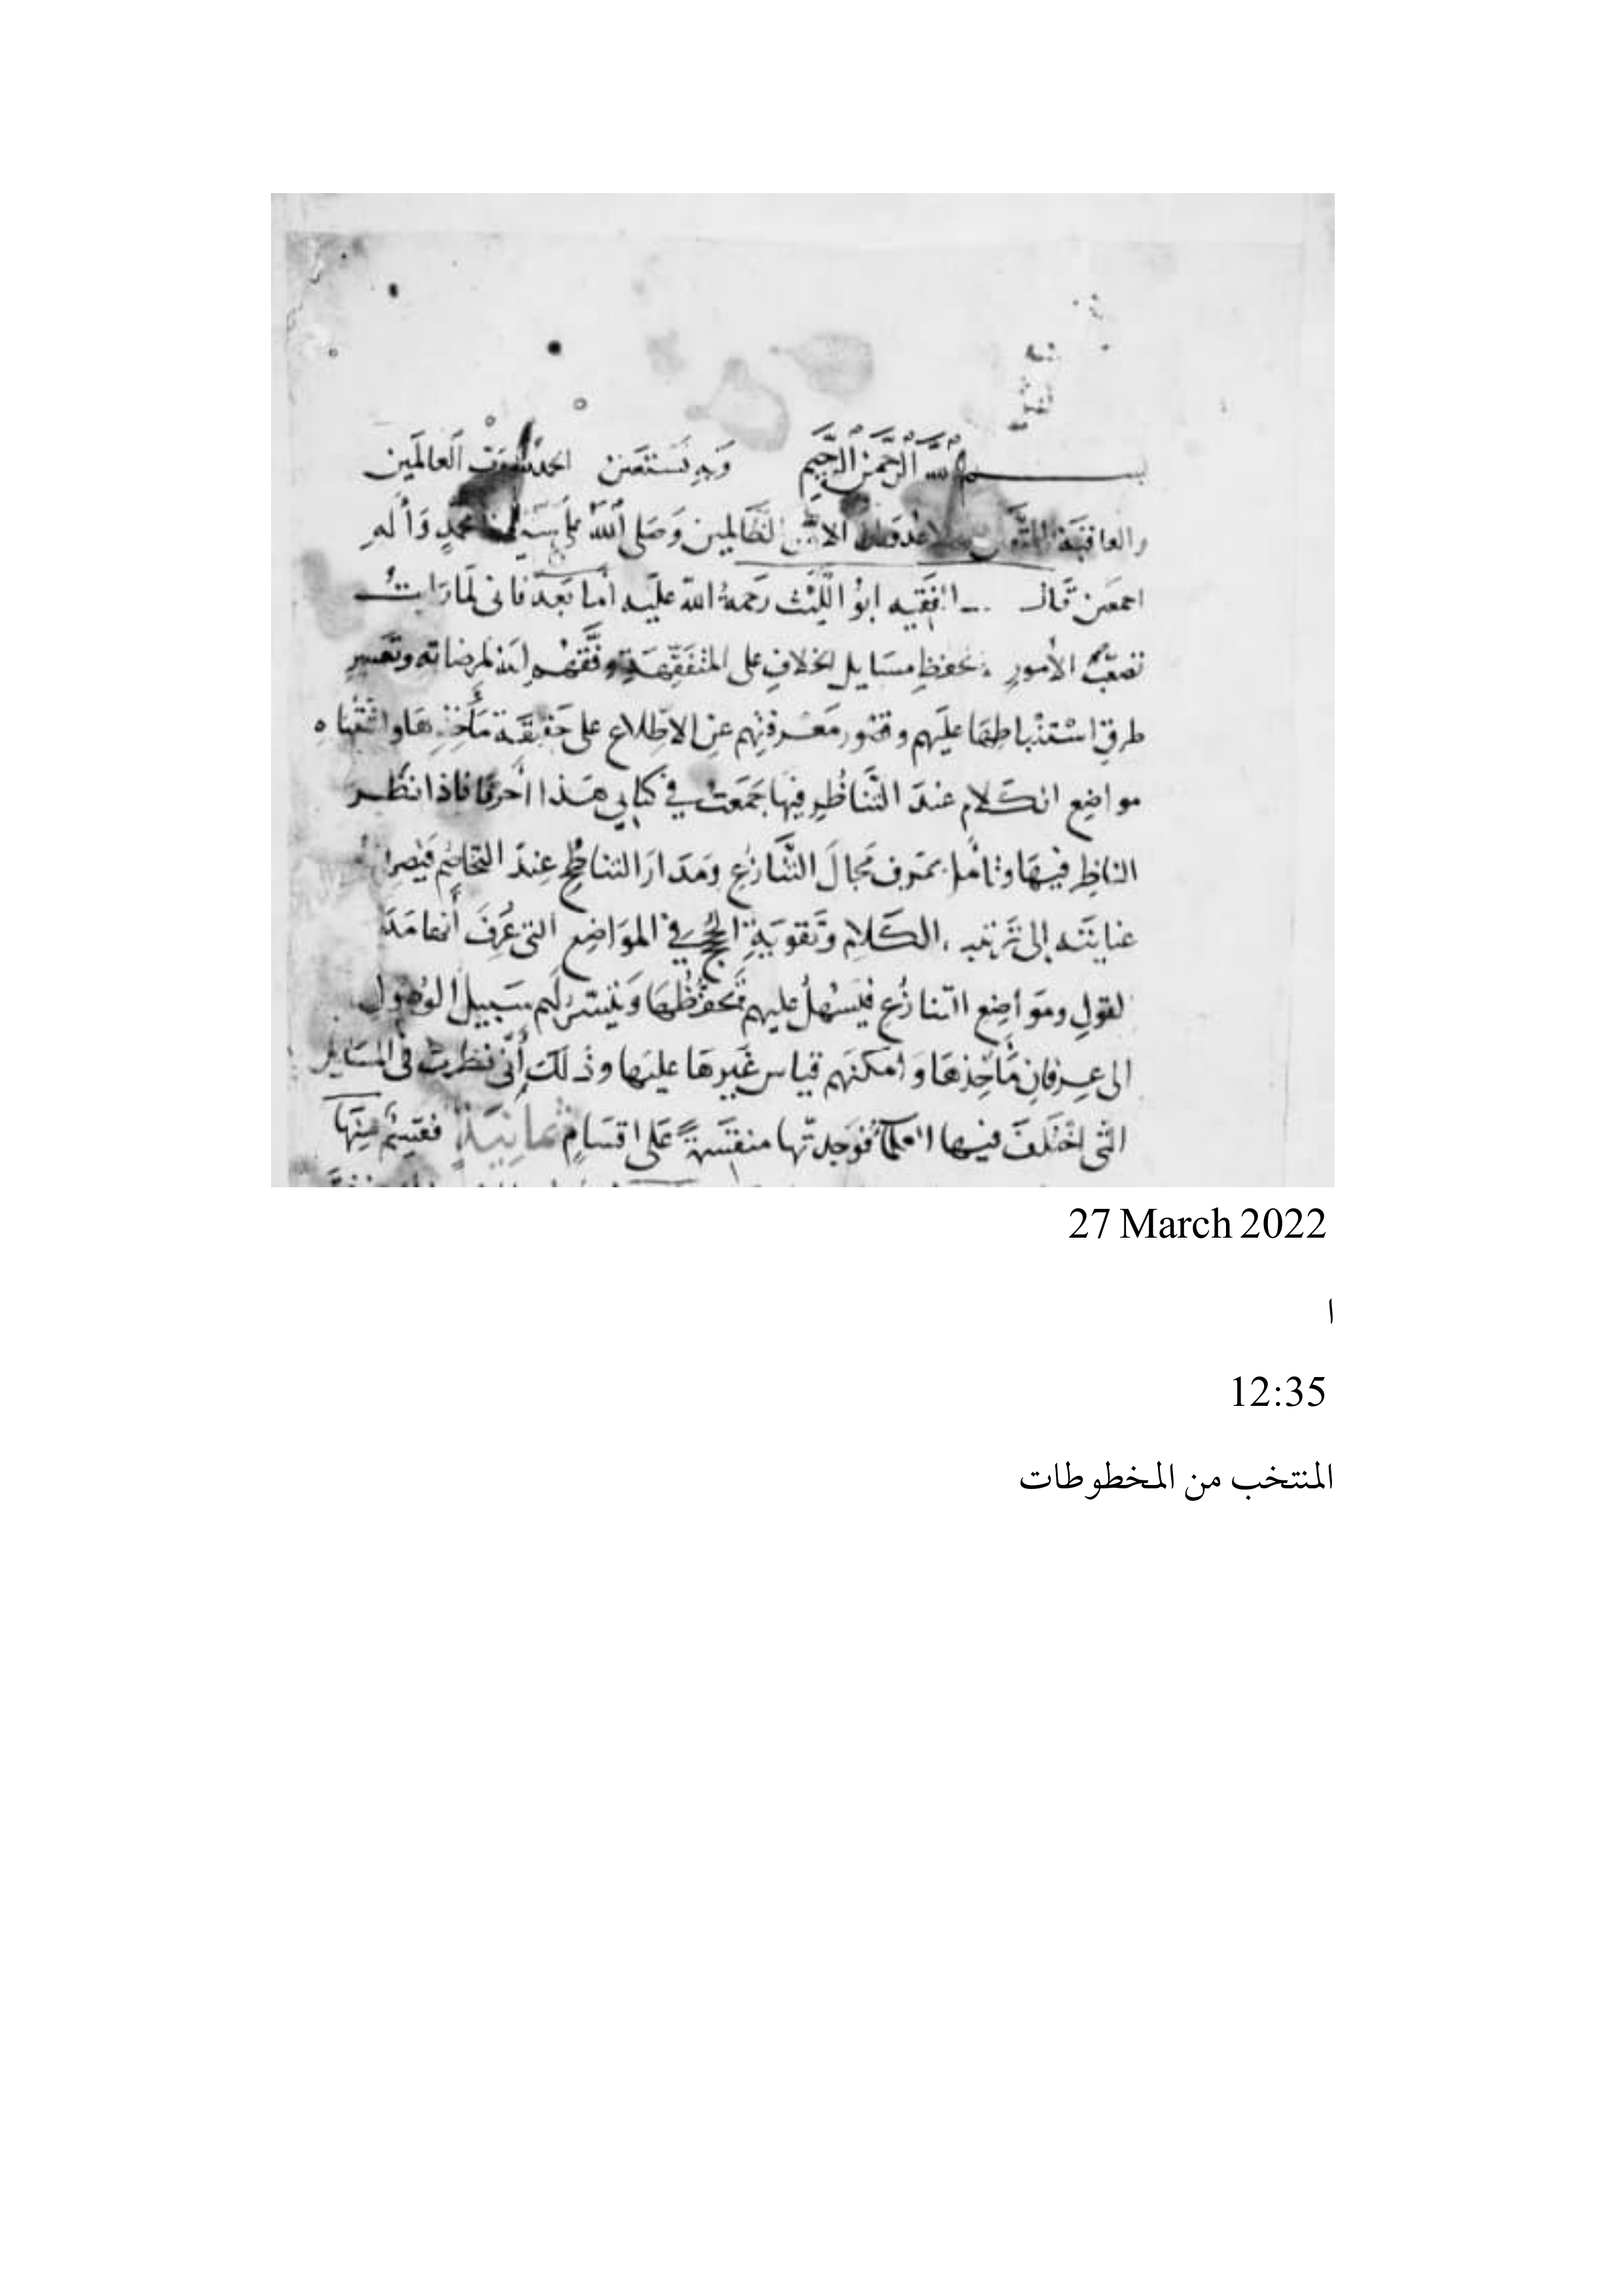 بسم الله الرحمن الرحيم وبه نستعين الحمد لله رب العالمين
والعاقبة للمتقين ولا عدوان الا على الظالمين وصلى الله على سيدنا محمد وأله
اجمعين قال الفقيه ابو الليث رحمة الله عليه أما بعد فاني لما رايت
تصعب الأمور بحفظ مسايل الخلاف على المتفقهة وفقهم الله لمرضاته وتعسير
طرق استنباطها عليهم وقصور معرفتهم عن الاطلاع على حقيقة مأخذها واشتباه
مواضع الكلام عند التناظر فيها جمعت في كتابي هذا أحرفا فاذا نظر
الناظر فيها وتأملها مجال التنازع ومدار التناطح عند التخاصم فيصرف
عنايته إلى ترتيب الكلام وتقوية الحجج في المواضع التي عرف أنها مدار
لقول ومواضع التنازع فيسهل عليهم تحفظها ويتيسر لهم سبيل الوصول
الى عرفان مأخذها وامكنهم قياس غيرها عليها وذلك أني نظرت في المسايل
التي اختلف فيها العلماء فوجدتها منقسمة على اقسام ثمانية فقسم منها
27 March 2022
ا
12:35
المنتخب من المخطوطات